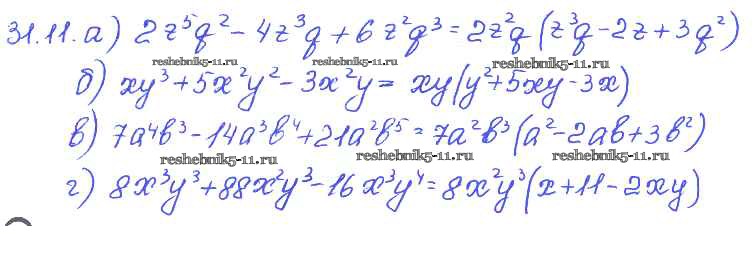 31.11. а) 2z⁵q² - 4z³q + 6z²q³ = 2z²q (z³q - 2z + 3q²)
reshebnik5-11.ru reshebnik5-11.ru reshebnik5-11.ru
б) xy³ + 5x²y² - 3x²y = xy(y² + 5xy - 3x)
в) 7a⁴b³ - 14a³b⁴ + 21a²b⁵ = 7a²b³ (a² - 2ab + 3b²)
reshebnik5-11.ru reshebnik5-11.ru reshebnik5-11.ru
г) 8x³y³ + 88x²y³ - 16x³y⁴ = 8x²y³ (x + 11 - 2xy)